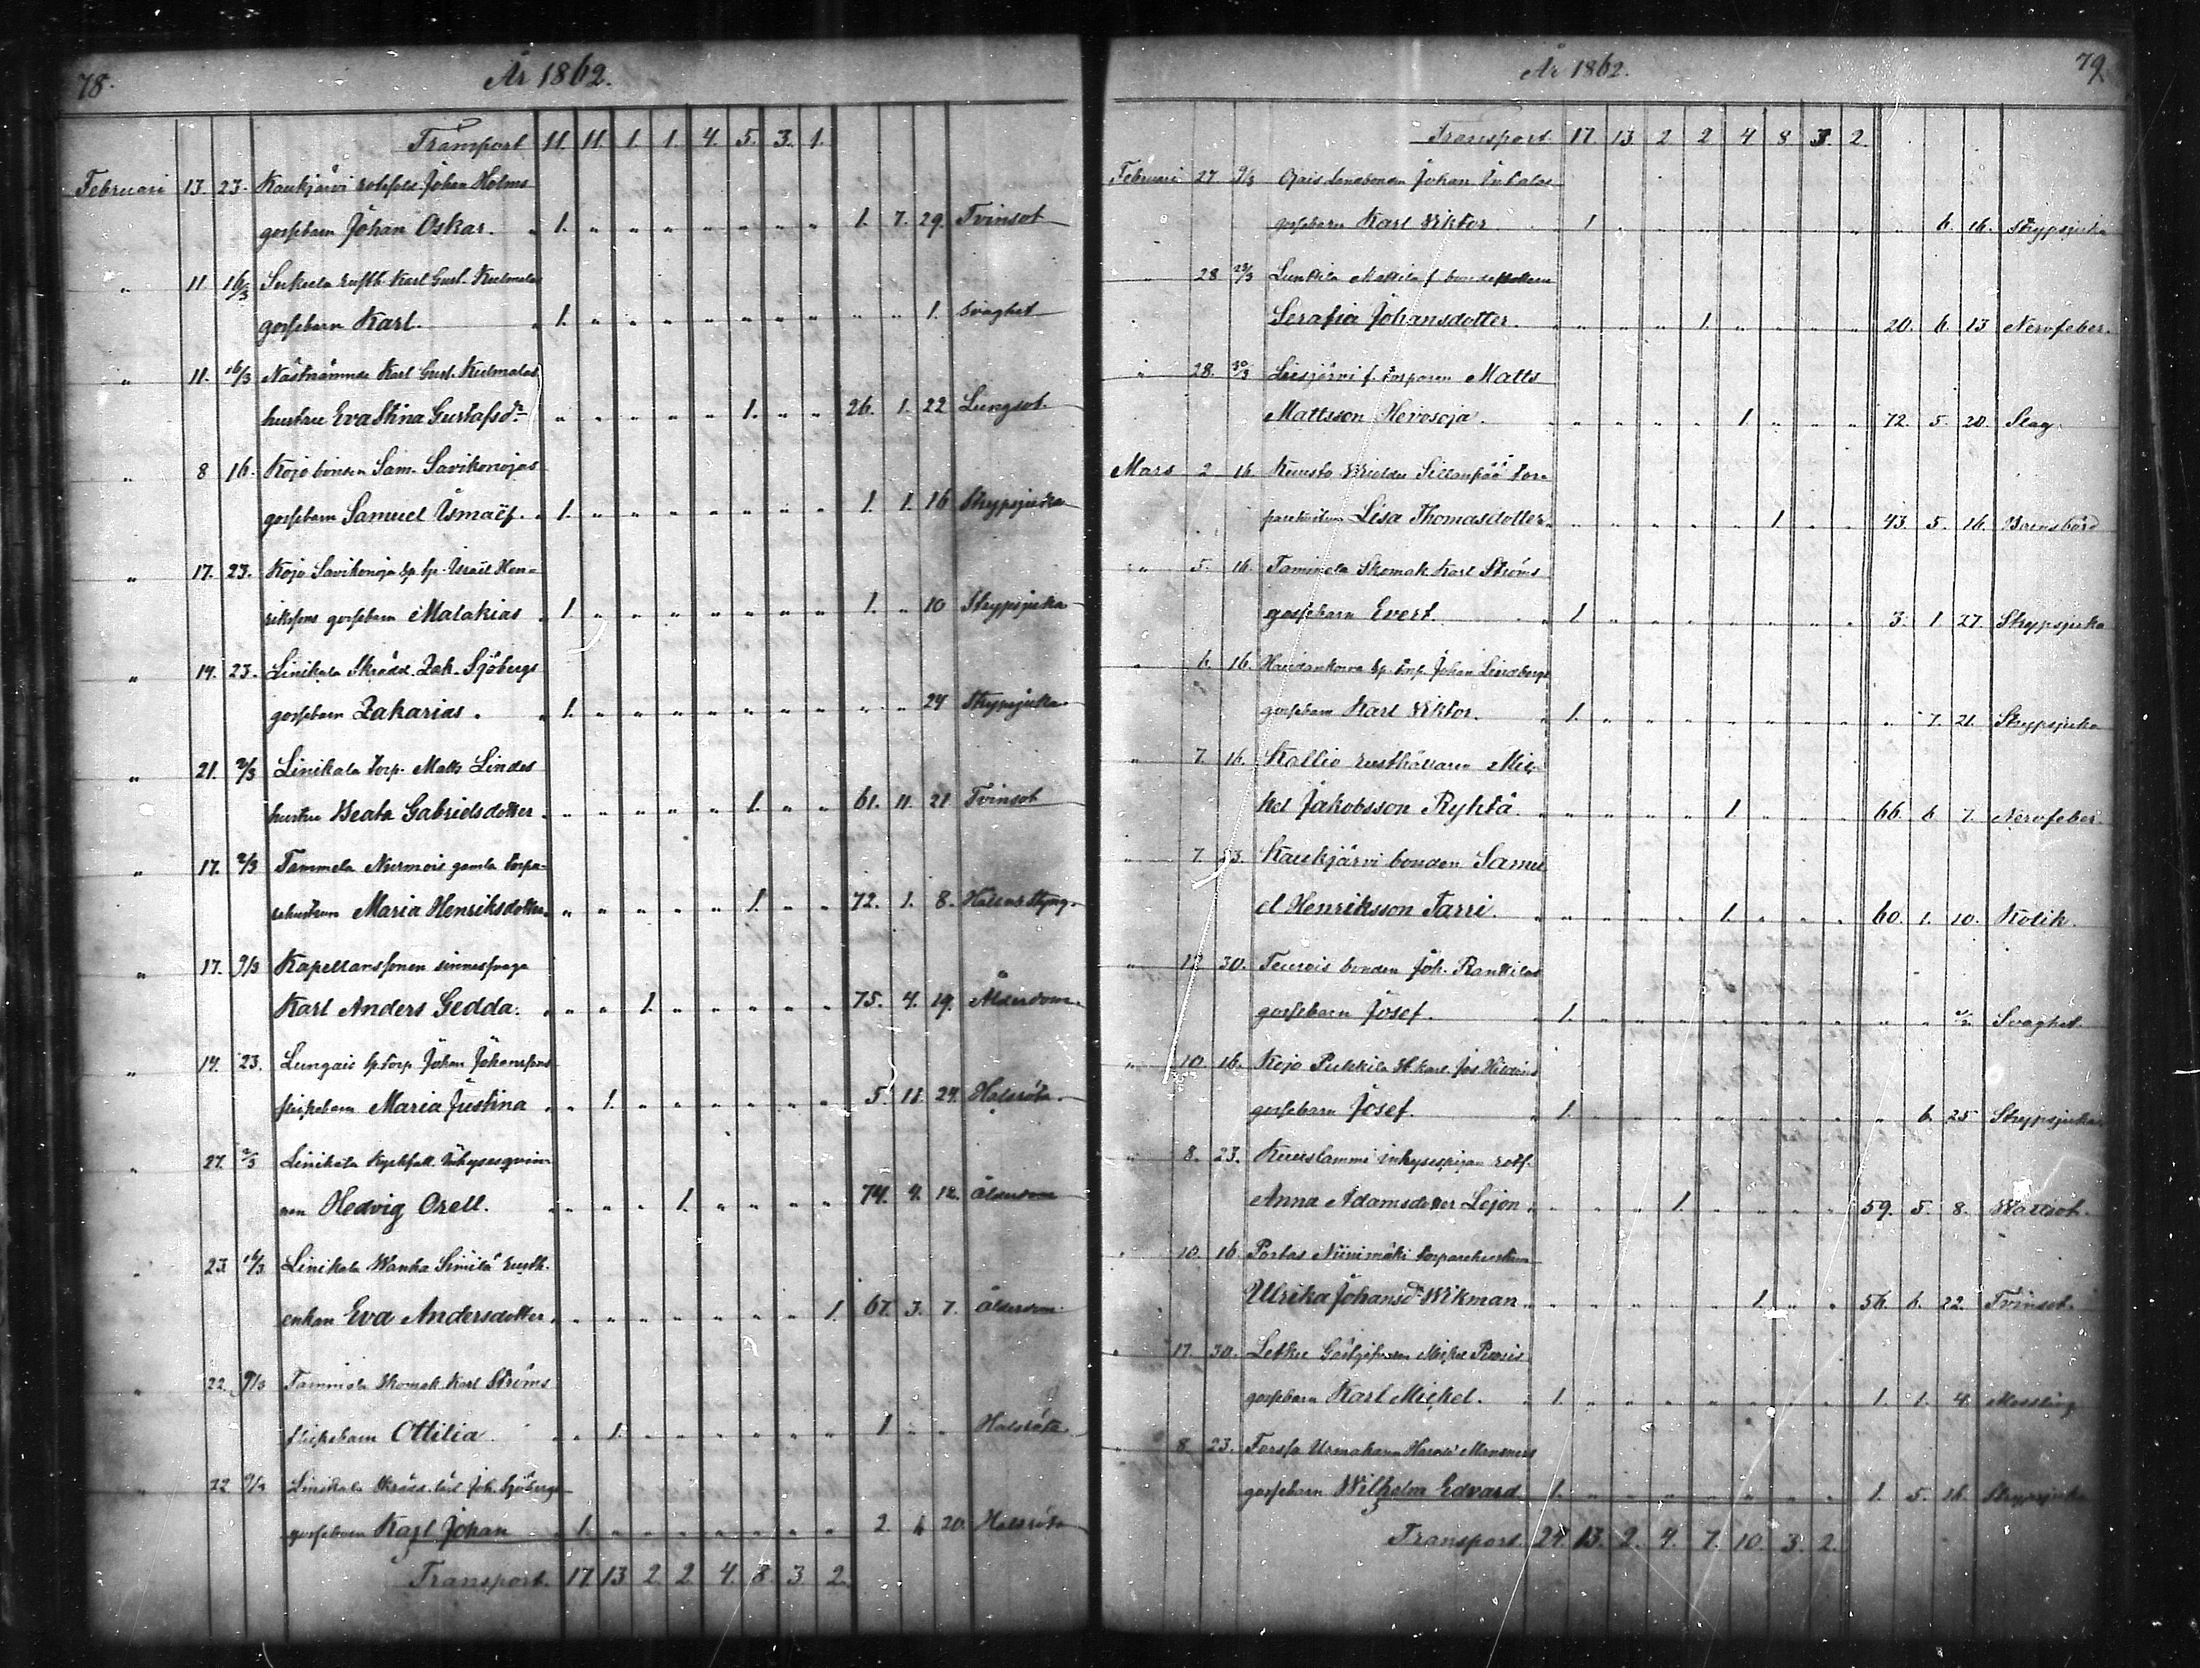 78.
År 1862.
Transport 11. 11. 1. 1. 4. 5. 3. 1.
Februari 13. 23. Kaukjärvi Johan Holms
gossebarn Johan Oskar. 1. " " " " " " " 1. 7. 29. Tvinsot
" 11 16/3 Karl Gust. Kulmalas
gossebarn Karl. 1. " " " " " " " " " 1. Svaghet
" 11. 16/3 Nästnämnde Karl Gust. Kulmalas
hustru Eva Stina Gustafsdr " " " " " 1. " " 26. 1. 22 Lungsot.
" 8 16. Kojo bonden Sam. Savikonojas
gossebarn Samuel Ismaël. 1. " " " " " " " 1. 1. 16 Strypsjuka
" 17. 23. Kojo Savikonoja Israël Hen-
rikssons gossebarn Malakias 1. " " " " " " " 1. " 10 Strypsjuka
" 14. 23. Linikala Skrädd. Zak. Sjöbergs
gossebarn Zakarias. 1. " " " " " " " " " 24 Strypsjuka
" 21. 2/3 Linikala torp. Matts Lindes
hustru Beata Gabrielsdotter. " " " " " 1. " " 61. 11. 21 Tvinsot
" 17. 2/3 Tammela Nurmois gamla torpa-
rehustrun Maria Henriksdotter " " " " " 1. " " 72. 1. 8.
" 17. 9/3 Kapellanssonen sinnessvage
Karl Anders Gedda. " " 1. " " " " " 75. 4. 19. Ålderdom.
" 14. 23. Lungais torp Johan Johanssons
flickebarn Maria Justina " 1. " " " " " " 5. 11. 24. Halsröta.
" 27. 2/3 Linikala inhysesqvin-
nan Hedvig Orell. " " " 1. " " " " 74. 4. 12. Ålderdom
" 23. 16/3 Linikala Wanha Simila rusth.
enkan Eva Andersdotter. " " " " " " " 1. 67. 3. 7. Ålderdom.
" 22. 9/3 Tammela Skomak. Karl Ströms
flickebarn Ottilia. " 1. " " " " " " 1 " " Halsröta
" 22 9/3 Linikala Joh. Sjöbergs
gossebarn Karl Johan " 1. " " " " " " " 2. 4 20. Halsröta
Transport. 17. 13 2. 2. 4. 8. 3. 2.
79.
År 1862.
Transport. 17. 13. 2. 2 4 8. 3. 2.
Februari 27 9/3 Johan
gossebarn Karl Viktor. 1 " " " " " " " " 6. 16. Strypsjuka
" 28 23/3 Mattila f.
Serafia Johansdotter. " " " 1. " " " " 20. 6. 13 Nervfeber.
" 28. 30/3 Liesjärvi f. torparen Matts
Mattsson Hevosoja. " " " " 1. " " " 72. 5. 20. Slag.
Mars 2 16 Kuusto Sillanpää tor-
parehustrun Lisa Thomasdotter. " " " " " 1. " " 43. 5. 16. Barnsbörd
" 5. 16. Tammela Skomak. Karl Ströms
gossebarn Evert. 1. " " " " " " " 3. 1. 27. Strypsjuka
" 6. 16. torp. Johan Lindbergs
gossebarn Karl Viktor. 1. " " " " " " " " 7. 21. Strypsjuka
" 7. 16. Kallio rusthållaren Mic-
kel Jakobsson Ryhtä. " " " " 1. " " " 66. 6. 7. Nervfeber.
" 7. 23. Kaukjärvi bonden Samu-
el Henriksson Tarri. " " " " 1. " " " 60. 1. 10. Kolik.
" 12 30. Teurois bonden Joh. Ranttilas
gossebarn Josef. 1. " " " " " " " " " Svaghet.
" 10. 16. Kojo Pukkila
gossebarn Josef. 1. " " " " " " " " 6. 25 Strypsjuka
" 8. 23. Kuuslammi inhysespigan
Anna Adamsdotter Lejon. " " " 1. " " " " 59. 5. 8. Wattsot.
" 10. 16 Portas Niinimäki torparehustrun
Ulrika Johansdr Wikman. " " " " " 1. " " 56. 6. 22. Tvinsot.
" 17. 30. Letku
gossebarn Karl Mickel. 1. " " " " " " " 1. 1. 4. Messling
" 8. 23. Forssa Urmakaren
gossebarn Wilhelm Edvard. 1. " " " " " " " 1. 5. 16. Strypsjuka
Transport. 24. 13. 2. 4. 7. 10. 3. 2.